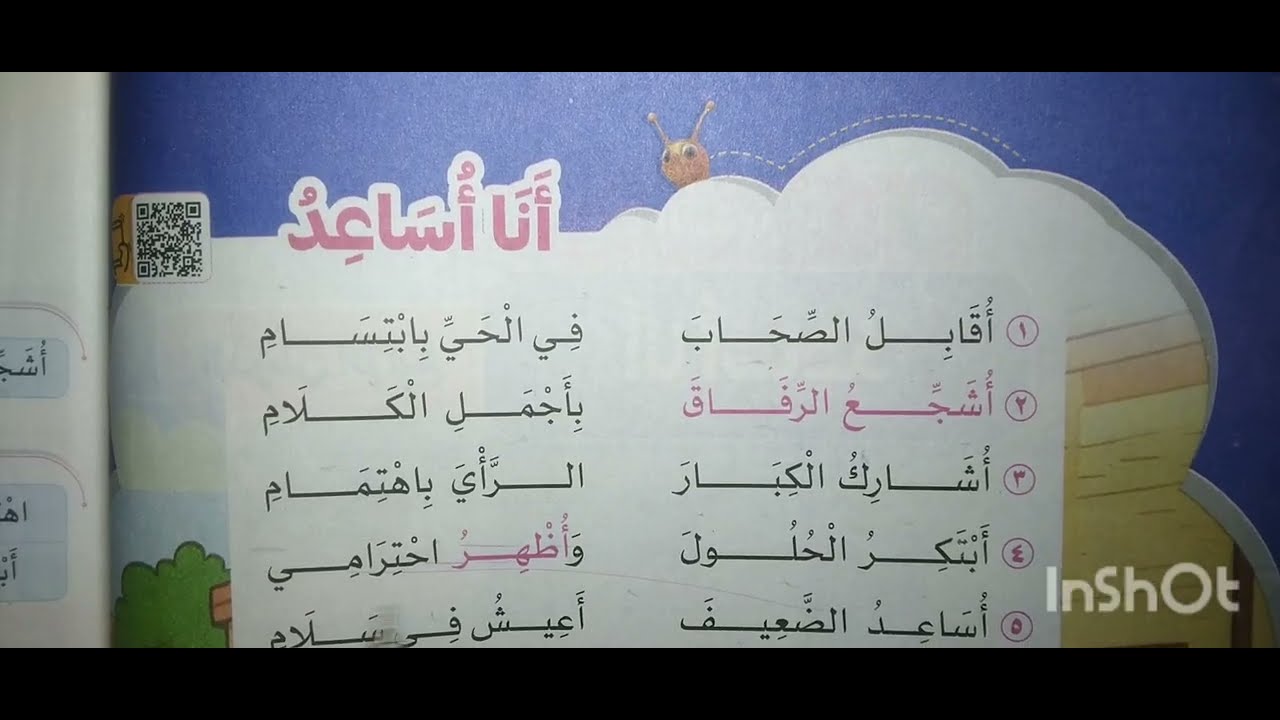 أَنَا أُسَاعِدُ
١ أُقَابِلُ الصِّحَابَ فِي الْحَيِّ بِابْتِسَامِ
٢ أُشَجِّعُ الرِّفَاقَ بِأَجْمَلِ الْكَلَامِ
٣ أُشَارِكُ الْكِبَارَ الرَّأْيَ بِاهْتِمَامِ
٤ أَبْتَكِرُ الْحُلُولَ وَأُظْهِرُ احْتِرَامِي
٥ أُسَاعِدُ الضَّعِيفَ أَعِيشُ فِي سَلَامِ
InShOt